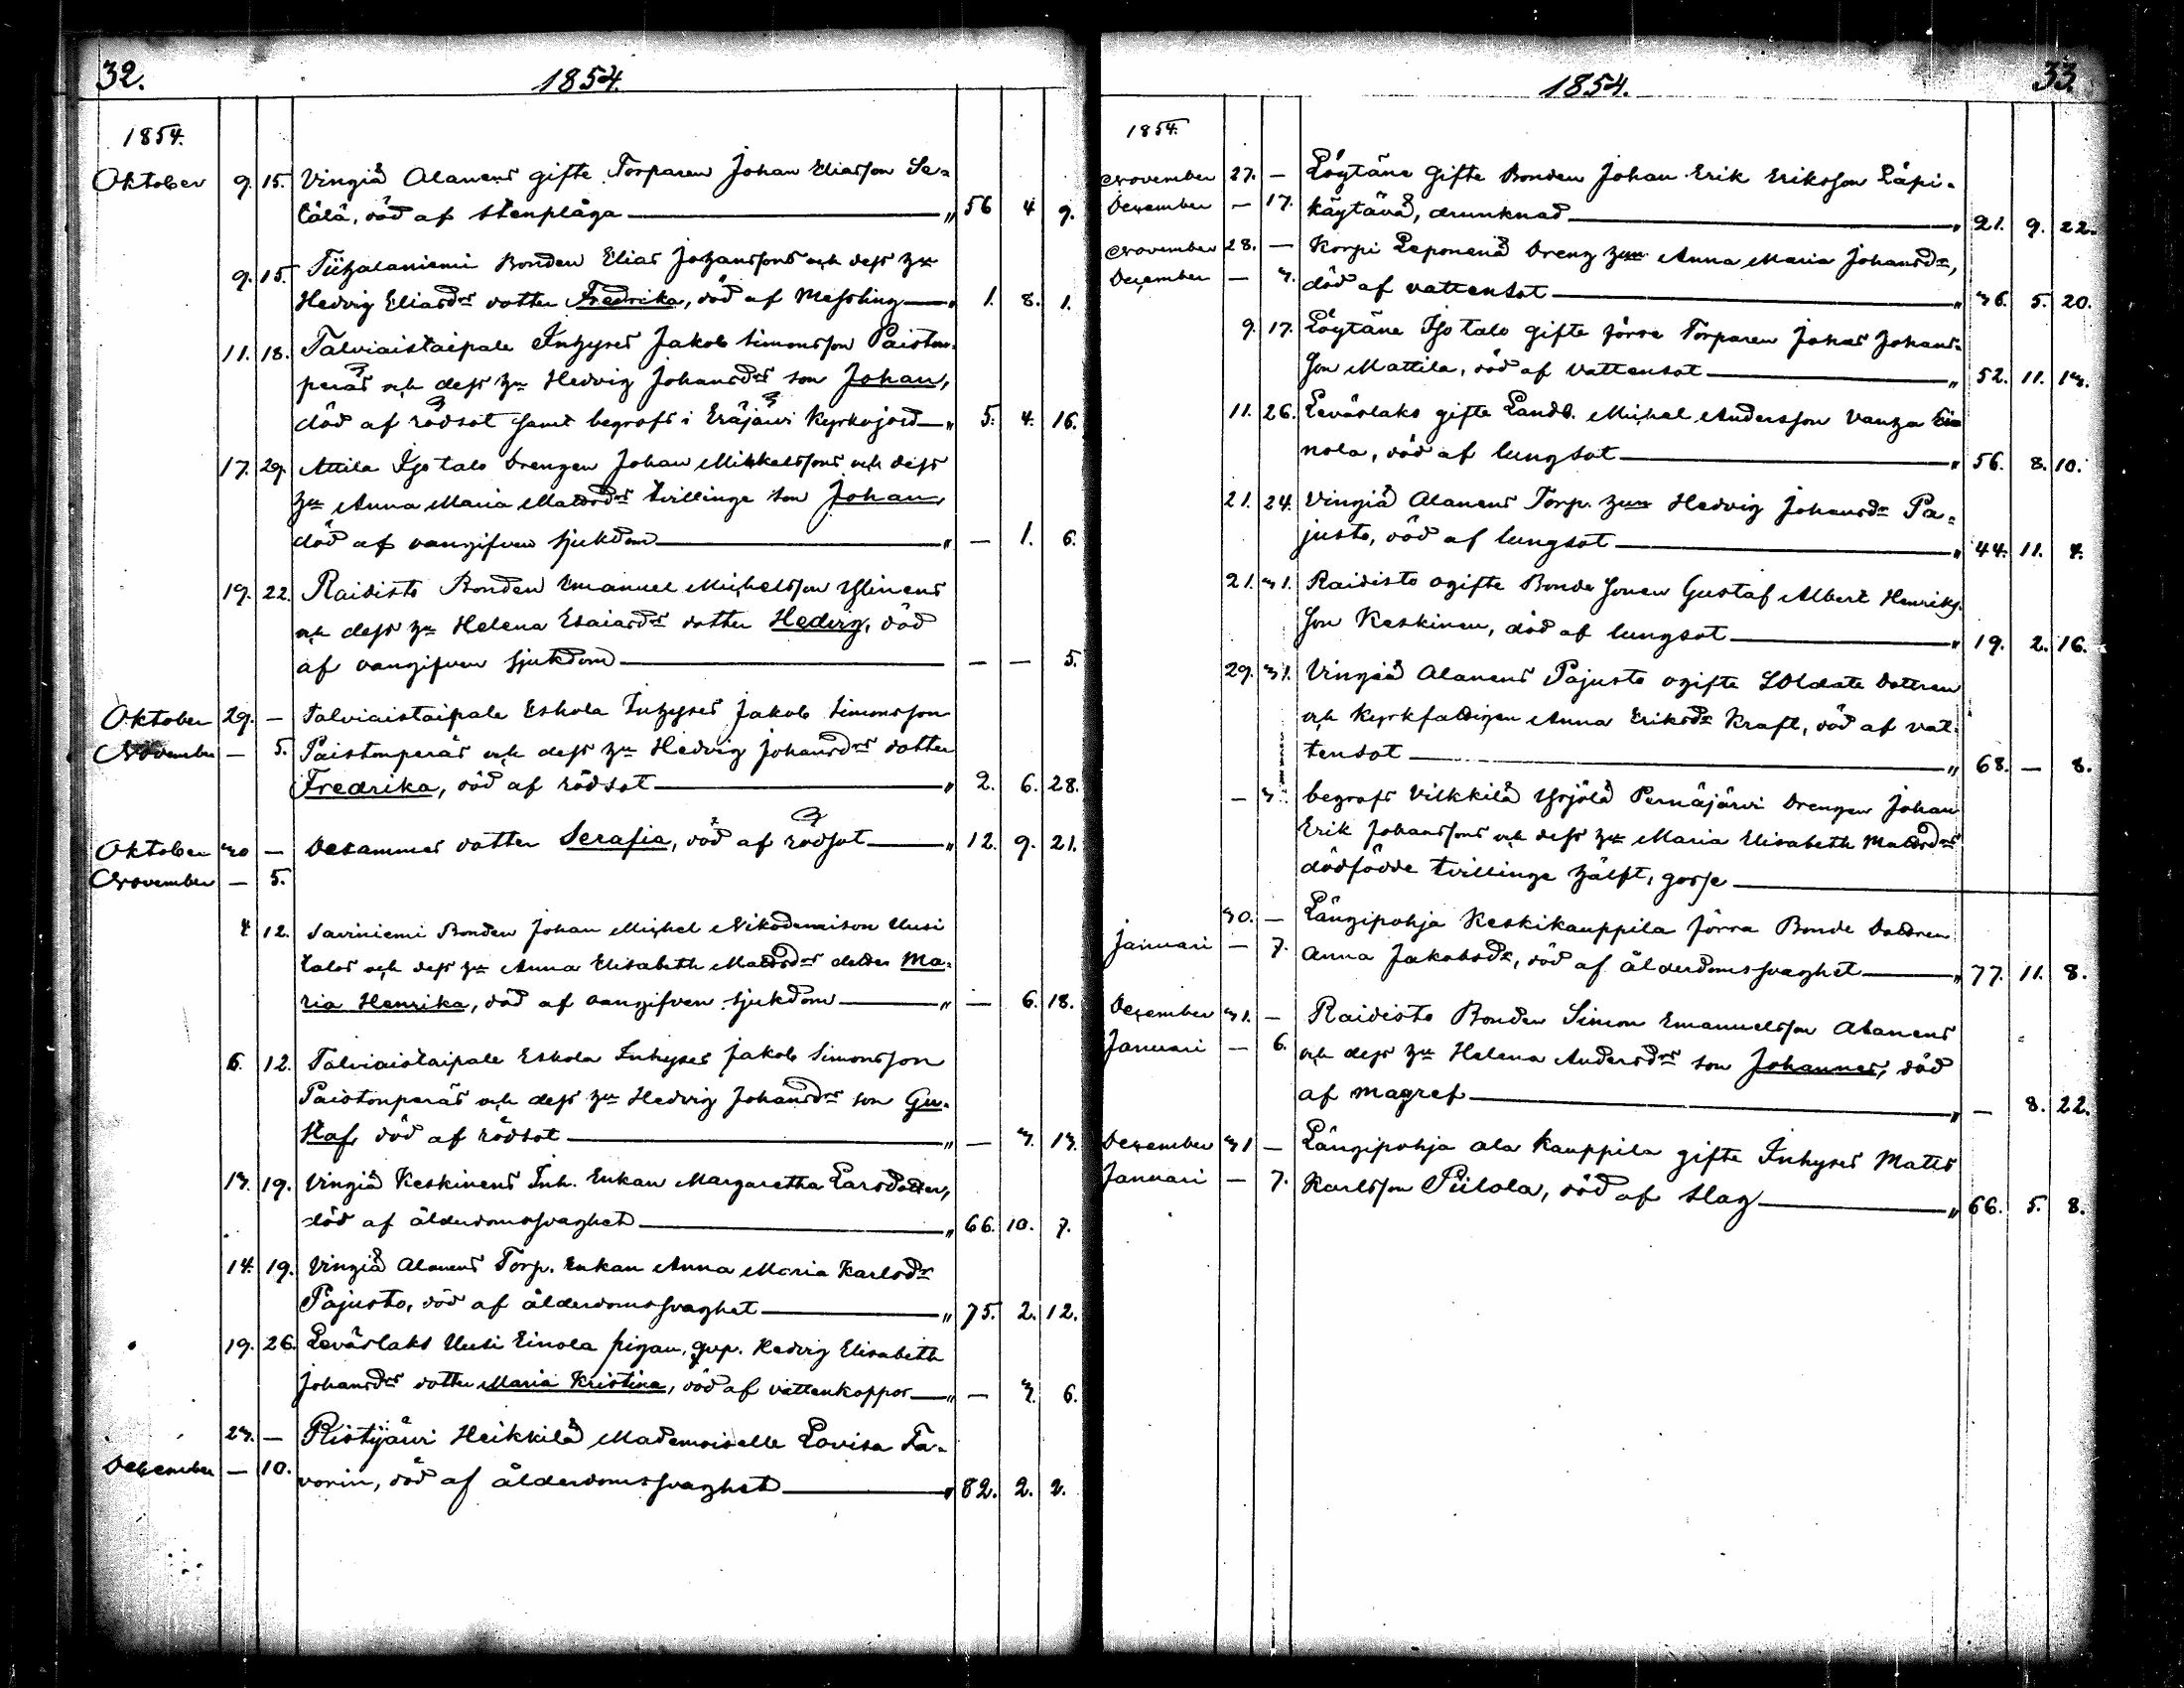 32.
1854.
1854.
Oktober 9. 15. Vingiä Alanens gifte Torparen Johan Eliasson Se-
lälä, död af stenplåga — " 56 4 9.
9. 15. Tiihalaniemi Bonden Elias Johanssons och dess hu
Hedvig Eliasdrs dotter Fredrika, död af Messling — " 1. 8. 1.
11. 18. Talviaistaipale Inhyses Jakob Simonsson Paiston-
peräs och dess hu Hedvig Johansdrs son Johan,
död af rödsot samt begrafs i Eräjärvi Kyrkojord — " 5. 4. 16.
17. 29. Attila Iso talo Drengen Johan Mikkelssons och dess
hu Anna Maria Mattsdrs tvillinge son Johan,
död af oangifven sjukdom — " — 1. 6.
19. 22. Raidisto Bonden Emanuel Michelsson Ylinens
och dess hu Helena Esaiasdrs dotter Hedvig, död
af oangifven sjukdom — — — 5.
Oktober 29. — Talviaistaipale Eskola Inhyses Jakob Simonsson
November — 5. Paistonperäs och dess hu Hedvig Johansdrs dotter
Fredrika, död af rödsot — " 2. 6. 28.
Oktober 30 — Desammes dotter Serafia, död af rödsot — " 12. 9. 21.
November — 5.
4 12. Saviniemi Bonden Johan Michel Nikodemison Uusi
talos och dess hu Anna Elisabeth Mattsdrs dotter Ma-
ria Henrika, död af oangifven sjukdom — " — 6. 18.
6. 12. Talviaistaipale Eskola Inhyses Jakob Simonsson
Paistonperäs och dess hu Hedvig Johansdrs son Gu-
staf, död af rödsot — " — 3. 13.
13. 19. Vingiä Keskinens Inh. Enkan Margaretha Larsdotter,
död af ålderdomssvaghet — " 66. 10. 7.
14. 19. Vingiä Alanens Torp. Enkan Anna Maria Karlsdr
Pajusto, död af ålderdomssvaghet — " 75. 2. 12.
19. 26. Leväslaks Uusi Einola pigan, qvp. Hedvig Elisabeth
Johansdrs dotter Maria Kristina, död af vattenkoppor — " — 3. 6.
23. — Ristijärvi Heikkilä Mademoiselle Lovisa Fa-
December — 10. vorin, död af ålderdomssvaghet — " 82. 2. 2.
33.
1854.
1854.
November 27. — Löytäne Gifte Bonden Johan Erik Eriksson Läpi-
December — 17. käytävä, drunknad — " 21. 9. 22.
November 28. — Korpi Leponens Dreng hun Anna Maria Johansdr,
December — 3. död af vattensot — " 36. 5. 20.
9. 17. Löytäne Iso talo gifte förre Torparen Johan Johans-
son Mattila, död af Vattensot — " 52. 11. 13.
11. 26. Leväslaks gifte Landb. Michel Andersson Vanha Ei-
nola, död af lungsot — " 56. 8. 10.
21. 24. Vingiä Alanens Torp. hun Hedvig Johansdr Pa-
justo, död af lungsot — " 44. 11. 4.
21. 31. Raidisto ogifte Bonde sonen Gustaf Albert Henriks-
son Keskinen, död af lungsot — " 19. 2. 16.
29. 31. Vingiä Alanens Pajusto ogifte Soldate Dottren
och Kyrkfattigen Anna Eriksdr Kraft, död af vat-
tensot — " 68. — 8.
— 3. begrafs Vilkkilä Yrjölä Pernäjärvi Drengen Johan
Erik Johanssons och dess hu Maria Elisabeth Mattsdrs
dödfödde tvillinge hälft, gosse —
30. — Längipohja Keskikauppila förra Bonde Dottren
Januari — 7. Anna Jakobsdr, död af ålderdomssvaghet — " 77. 11. 8.
December 31. — Raidisto Bonden Simon Emanuelsson Alanens
Januari — 6. och dess hu Helena Andersdrs son Johannes, död
af magref — " — 8. 22.
December 31 — Längipohja Ala Kauppila gifte Inhyses Matts
Januari — 7. Karlsson Piilola, död af slag — " 66. 5. 8.